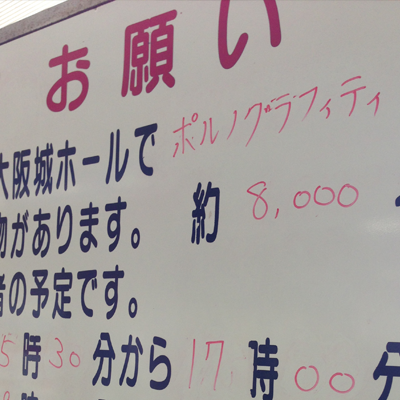 お願い
大阪城ホールで ポルノグラフィティ
物があります。 約 8,000
者の予定です。
5時30分から17時00分